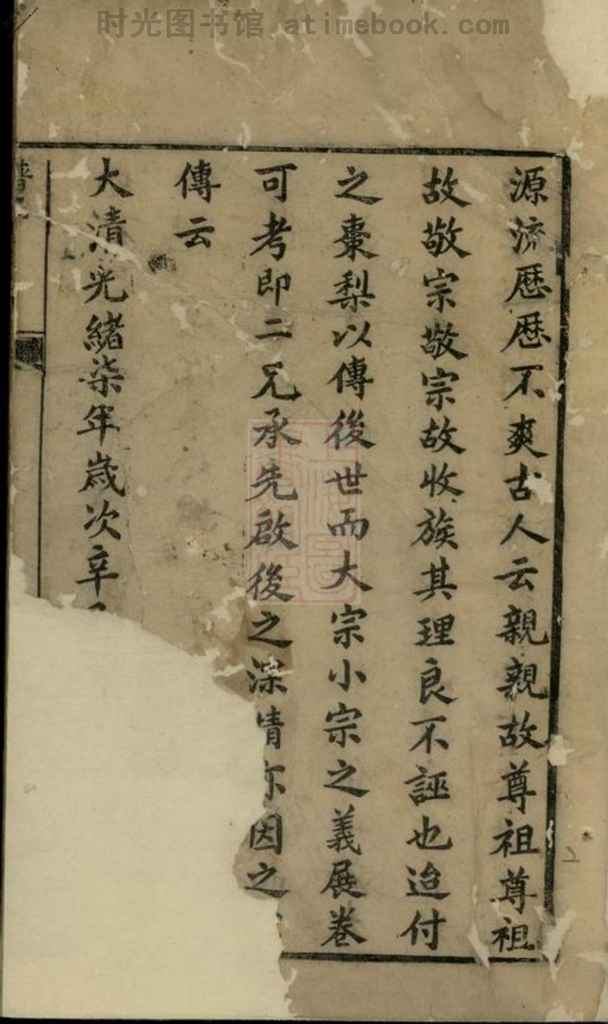 时光图书馆 atimebook.com
源流歷歷不爽古人云親親故尊祖尊祖
故敬宗敬宗故收族其理良不誣也迨付
之棗梨以傳後世而大宗小宗之義展卷
可考即二兄承先啟後之深情亦因之
傳云
大清光緒柒年歲次辛